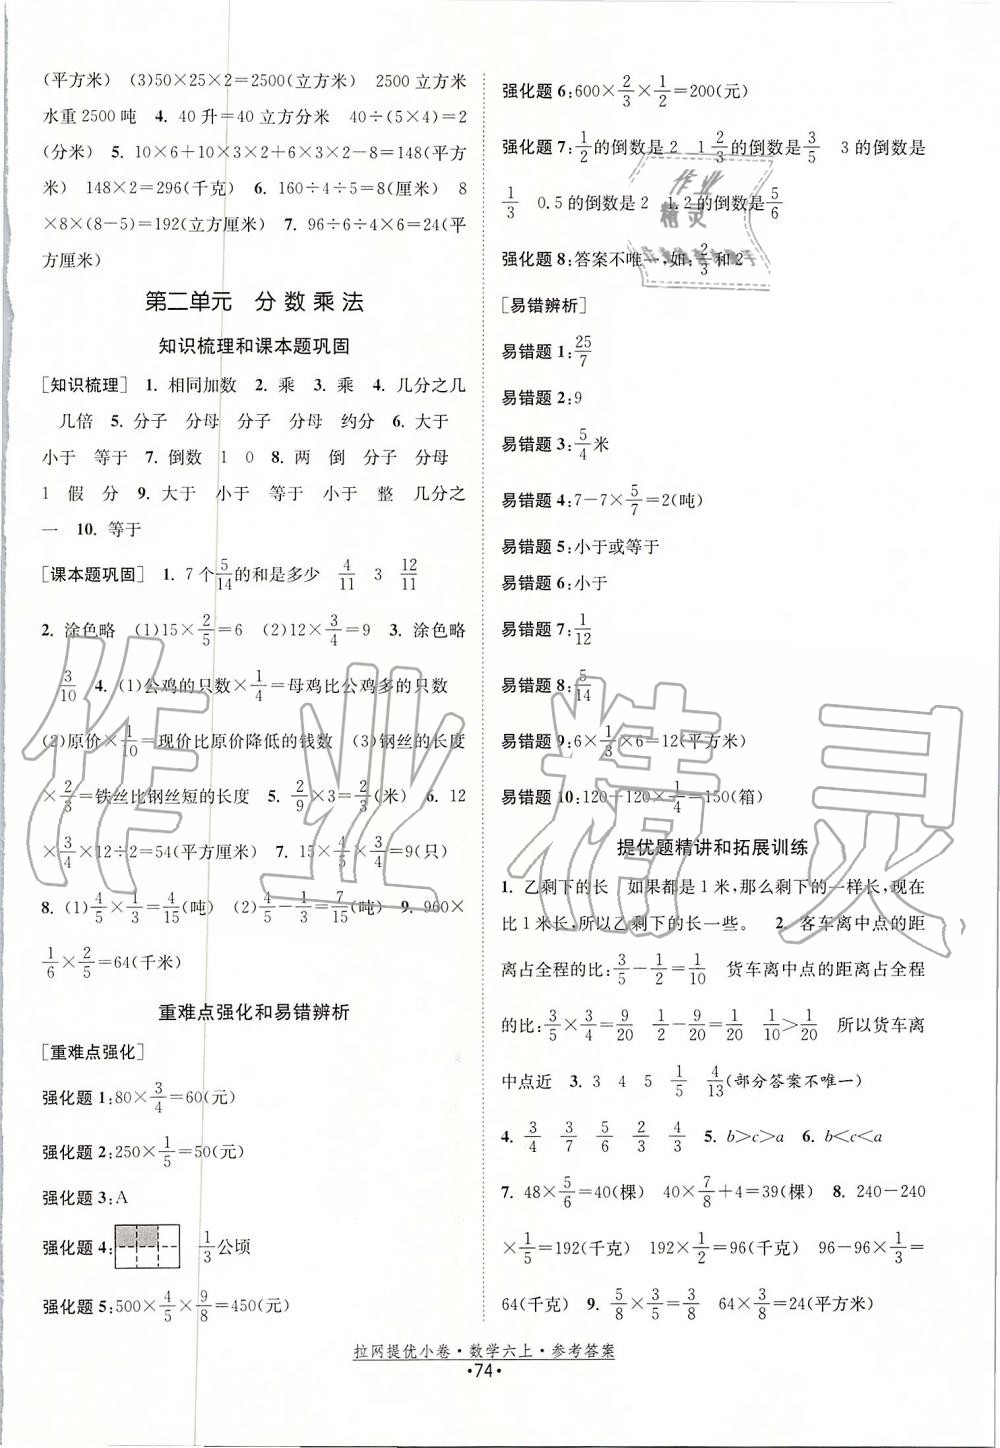 (平方米) (3)50×25×2=2500(立方米) 2500立方米
水重2500吨 4. 40升=40立方分米 40÷(5×4)=2
(分米) 5. 10×6+10×3×2+6×3×2-8=148(平方
米) 148×2=296(千克) 6. 160÷4÷5=8(厘米) 8
×8×(8-5)=192(立方厘米) 7. 96÷6÷4×6=24(平
方厘米)
第二单元 分数乘法
知识梳理和课本题巩固
[知识梳理] 1. 相同加数 2. 乘 3. 乘 4. 几分之几
几倍 5. 分子 分母 分子 分母 约分 6. 大于
小于 等于 7. 倒数 1 0 8. 两 倒 分子 分母
1 假 分 9. 大于 小于 等于 小于 整 几分之
一 10. 等于
[课本题巩固] 1. 7个5/14的和是多少 4/11 3 12/11
2. 涂色略 (1)15×2/5=6 (2)12×3/4=9 3. 涂色略
3/10 4. (1)公鸡的只数×1/4=母鸡比公鸡多的只数
(2)原价×1/10=现价比原价降低的钱数 (3)钢丝的长度
×2/3=铁丝比钢丝短的长度 5. 2/9×3=2/3(米) 6. 12
×3/4×12÷2=54(平方厘米) 7. 15×4/5×3/4=9(只)
8. (1)4/5×1/3=4/15(吨) (2)4/5-1/3=7/15(吨) 9. 960×
1/6×2/5=64(千米)
重难点强化和易错辨析
[重难点强化]
强化题1:80×3/4=60(元)
强化题2:250×1/5=50(元)
强化题3:A
强化题4: 1/3公顷
强化题5:500×4/5×9/8=450(元)
强化题6:600×2/3×1/2=200(元)
强化题7:1/2的倒数是2 1 2/3的倒数是3/5 3的倒数是
1/3 0.5的倒数是2 1.2的倒数是5/6
强化题8:答案不唯一,如:2/3和2
[易错辨析]
易错题1:25/7
易错题2:9
易错题3:5/4米
易错题4:7-7×5/7=2(吨)
易错题5:小于或等于
易错题6:小于
易错题7:1/12
易错题8:5/14
易错题9:6×1/3×6=12(平方米)
易错题10:120-120×1/4=150(箱)
提优题精讲和拓展训练
1. 乙剩下的长 如果都是1米,那么剩下的一样长,现在
比1米长,所以乙剩下的长一些。 2. 客车离中点的距
离占全程的比:3/5-1/2=1/10 货车离中点的距离占全程
的比:3/5×3/4=9/20 1/2-9/20=1/20 1/10>1/20 所以货车离
中点近 3. 3 4 5 1/5 4/13(部分答案不唯一)
4. 3/4 3/7 5/6 2/3 4/3 5. b>c>a 6. b<c<a
7. 48×5/6=40(棵) 40×7/8+4=39(棵) 8. 240-240
×1/5=192(千克) 192×1/2=96(千克) 96-96×1/3=
64(千克) 9. 5/8×3/5=3/8 64×3/8=24(平方米)
拉网提优小卷·数学六上·参考答案
·74·
作业精灵
作业
精灵